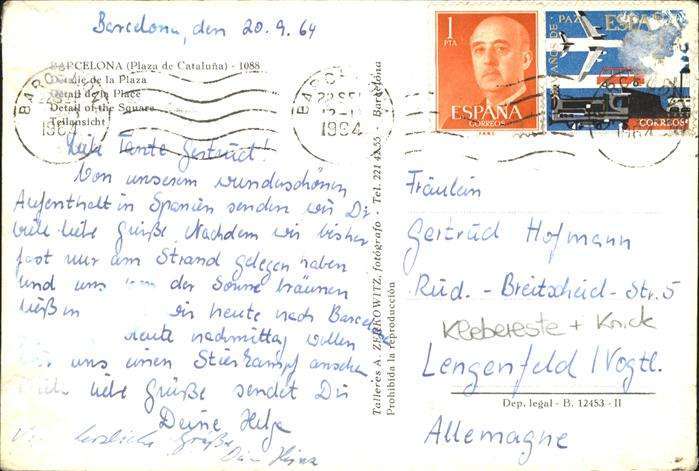 Barcelona, den 20.9.64
BARCELONA (Plaza de Cataluña) - 1088
Detalle de la Plaza
Détail de la Place
Detail of the Square
Teilansicht
Liebe Tante Gertrud!
Von unserem wunderschönen
Aufenthalt in Spanien senden wir Dir
viele liebe Grüße. Nachdem wir bisher
fast nur am Strand gelegen haben
und uns von der Sonne bräunen
ließen wir heute nach Barcelona
heute nachmittag wollen
wir uns einen Stierkampf ansehen
Viele liebe Grüße sendet Dir
Deine Helga
herzliche Grüße
Talleres A. ZERKOWITZ, fotógrafo - Tel. 221 43 55 - Barcelona
Prohibida la reproducción
1
PTA
ESPAÑA
CORREOS
PAZ ESPAÑA
AÑOS DE
CORREOS
BARC
22 SEP
1964
BARC
22 SEP
1964
1964
Fräulein
Gertrud Hofmann
Rud. - Breitscheid - Str. 5
Klebereste + Knick
Lengenfeld / Vogtl.
Dep. legal - B. 12453 - II
Allemagne